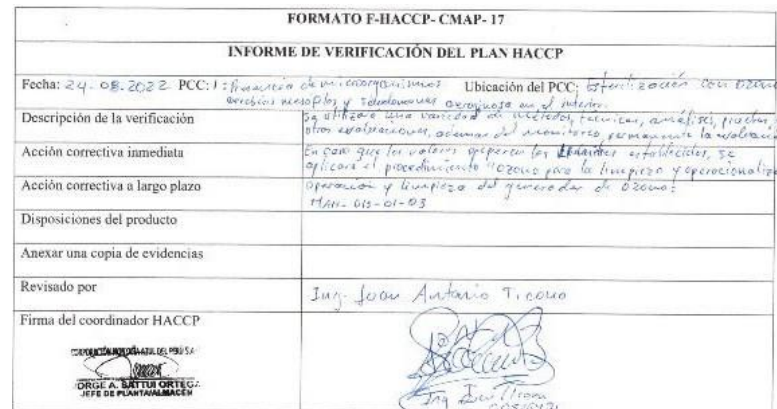 FORMATO F-HACCP- CMAP- 17
INFORME DE VERIFICACIÓN DEL PLAN HACCP
Fecha: 24. 08. 2022 PCC: 1: Presencia de microorganismos Ubicación del PCC: Esterilización con Ozono
aerobios mesofilos y en el interior.
Descripción de la verificación
Se utilizará una variedad de métodos, técnicas, análisis, pruebas
otras evaluaciones, ademas del monitoreo, permanente la
Acción correctiva inmediata
En caso que los valores superen los establecidos, se
aplicará el procedimiento "Ozono para la limpieza y
Acción correctiva a largo plazo
Operación y limpieza del generador de Ozono:
MAN-
Disposiciones del producto
Anexar una copia de evidencias
Revisado por
Ing. Juan Antonio Ticona
Firma del coordinador HACCP
JORGE A. SATTUI ORTEGA
JEFE DE PLANTA/ALMACÉN
Ing